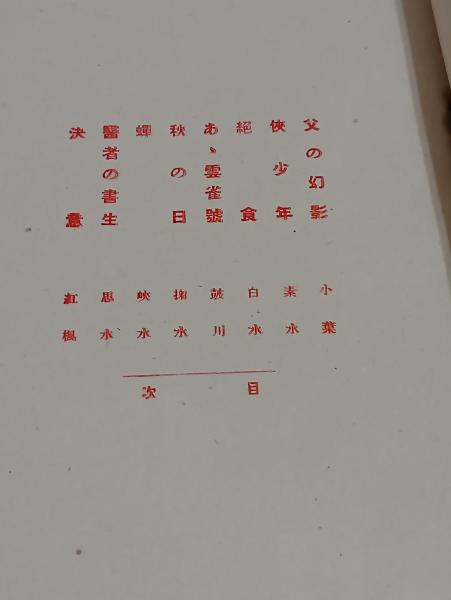 父の幻影
俠少年
絕食
あゝ雲雀號
秋の日
蟬
醫者の書生
決意
小葉
素水
白水
皷川
掬水
峽水
思水
紅楓
目次